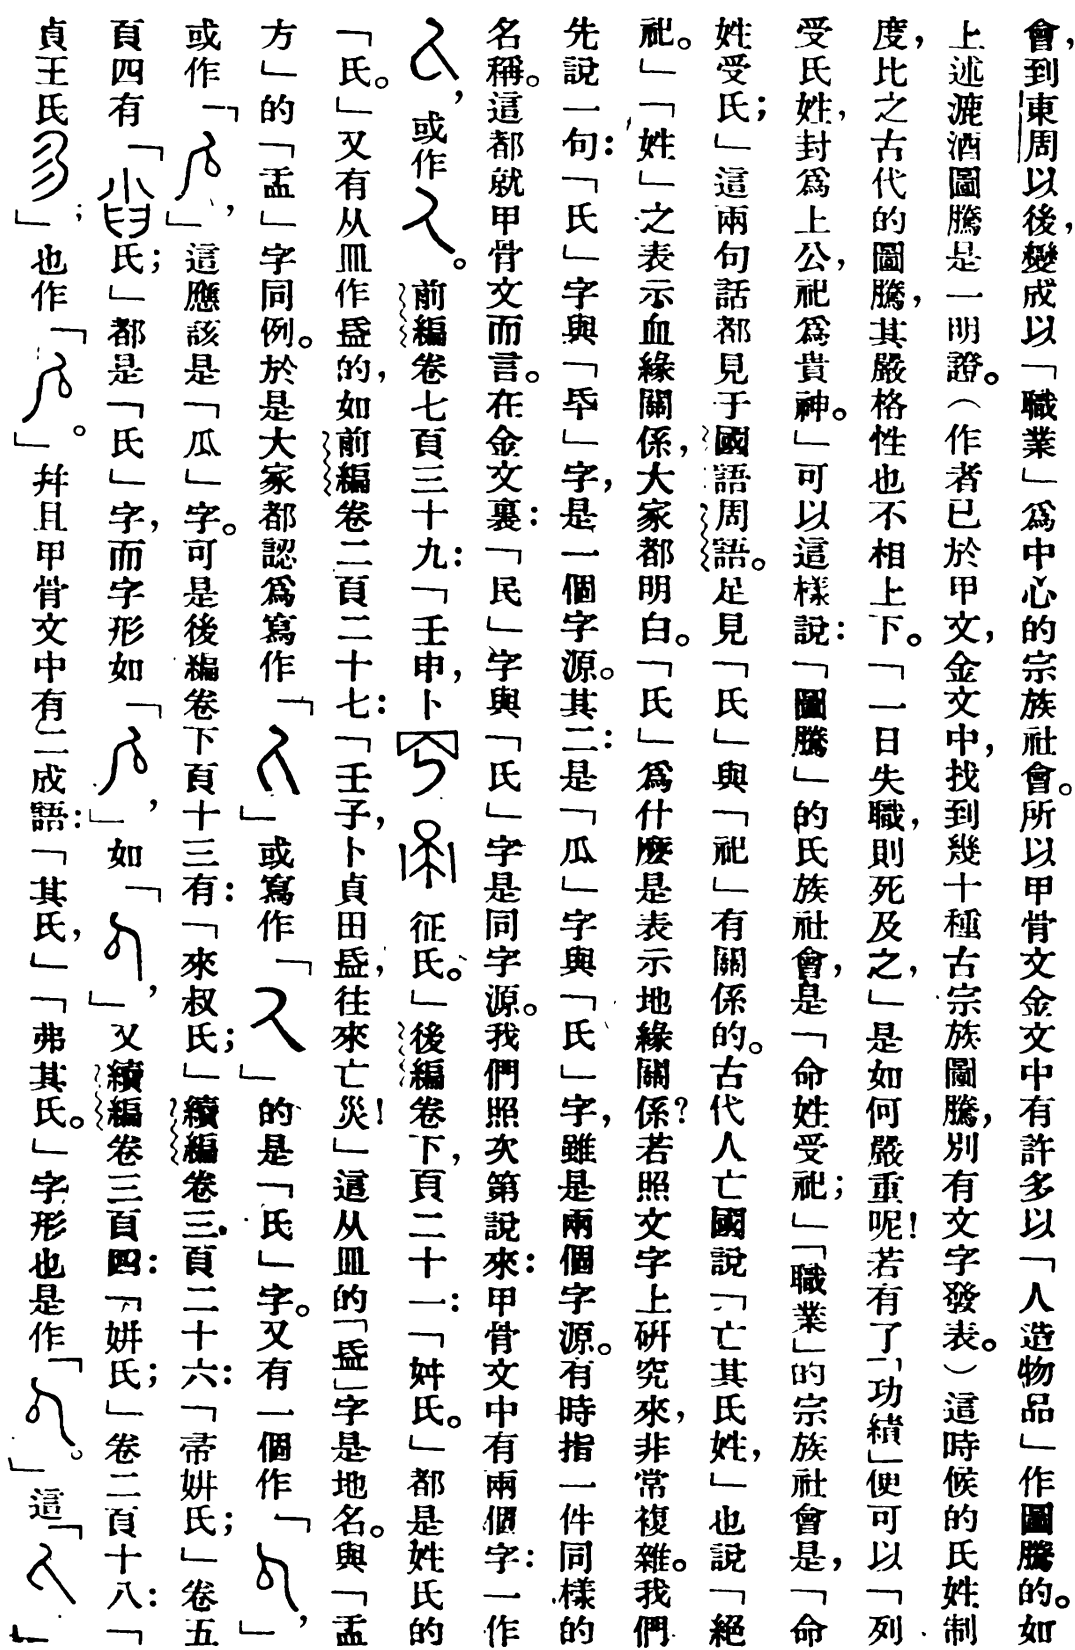 會，到東周以後，變成以「職業」爲中心的宗族社會。所以甲骨文金文中有許多以「人造物品」作圖騰的。如
上述漉酒圖騰是一明證。（作者已於甲文，金文中，找到幾十種古宗族圖騰，別有文字發表。）這時候的氏姓制
度，比之古代的圖騰，其嚴格性也不相上下。「一日失職，則死及之，」是如何嚴重呢！若有了「功績」便可以「列
受氏姓，封爲上公，祀爲貴神。」可以這樣說：「圖騰」的氏族社會，是「命姓受祀；」「職業」的宗族社會是，「命
姓受氏；」這兩句話都見于國語周語。足見「氏」與「祀」有關係的。古代人亡國說「亡其氏姓，」也說「絕
祀。」「姓」之表示血緣關係，大家都明白。「氏」爲什麼是表示地緣關係？若照文字上研究來，非常複雜。我們
先說一句：「氏」字與「氒」字，是一個字源。其二：是「瓜」字與「氏」字，雖是兩個字源。有時指一件同樣的
名稱。這都就甲骨文而言。在金文裏：「民」字與「氏」字是同字源。我們照次第說來：甲骨文中有兩個字：一作
，或作。前編卷七頁三十九：「壬申，卜征氏。」後編卷下，頁二十一：「姅氏。」都是姓氏的
「氏。」又有从皿作𥁀的，如前編卷二頁二十七：「壬子，卜貞田𥁀，往來亡災！」這从皿的「𥁀」字是地名。與「盂
方」的「盂」字同例。於是大家都認爲寫作「」或寫作「」的是「氏」字。又有一個作「」，
或作「」，這應該是「瓜」字。可是後編卷下頁十三有：「來叔氏；」續編卷三頁二十六：「帚姘氏；」卷五
頁四有「氏；」都是「氏」字，而字形如「」，如「」，又續編卷三頁四：「姘氏；」卷二頁十八：「
貞王氏」；也作「。」幷且甲骨文中有二成語：「其氏，」「弗其氏。」字形也是作「。」這「」